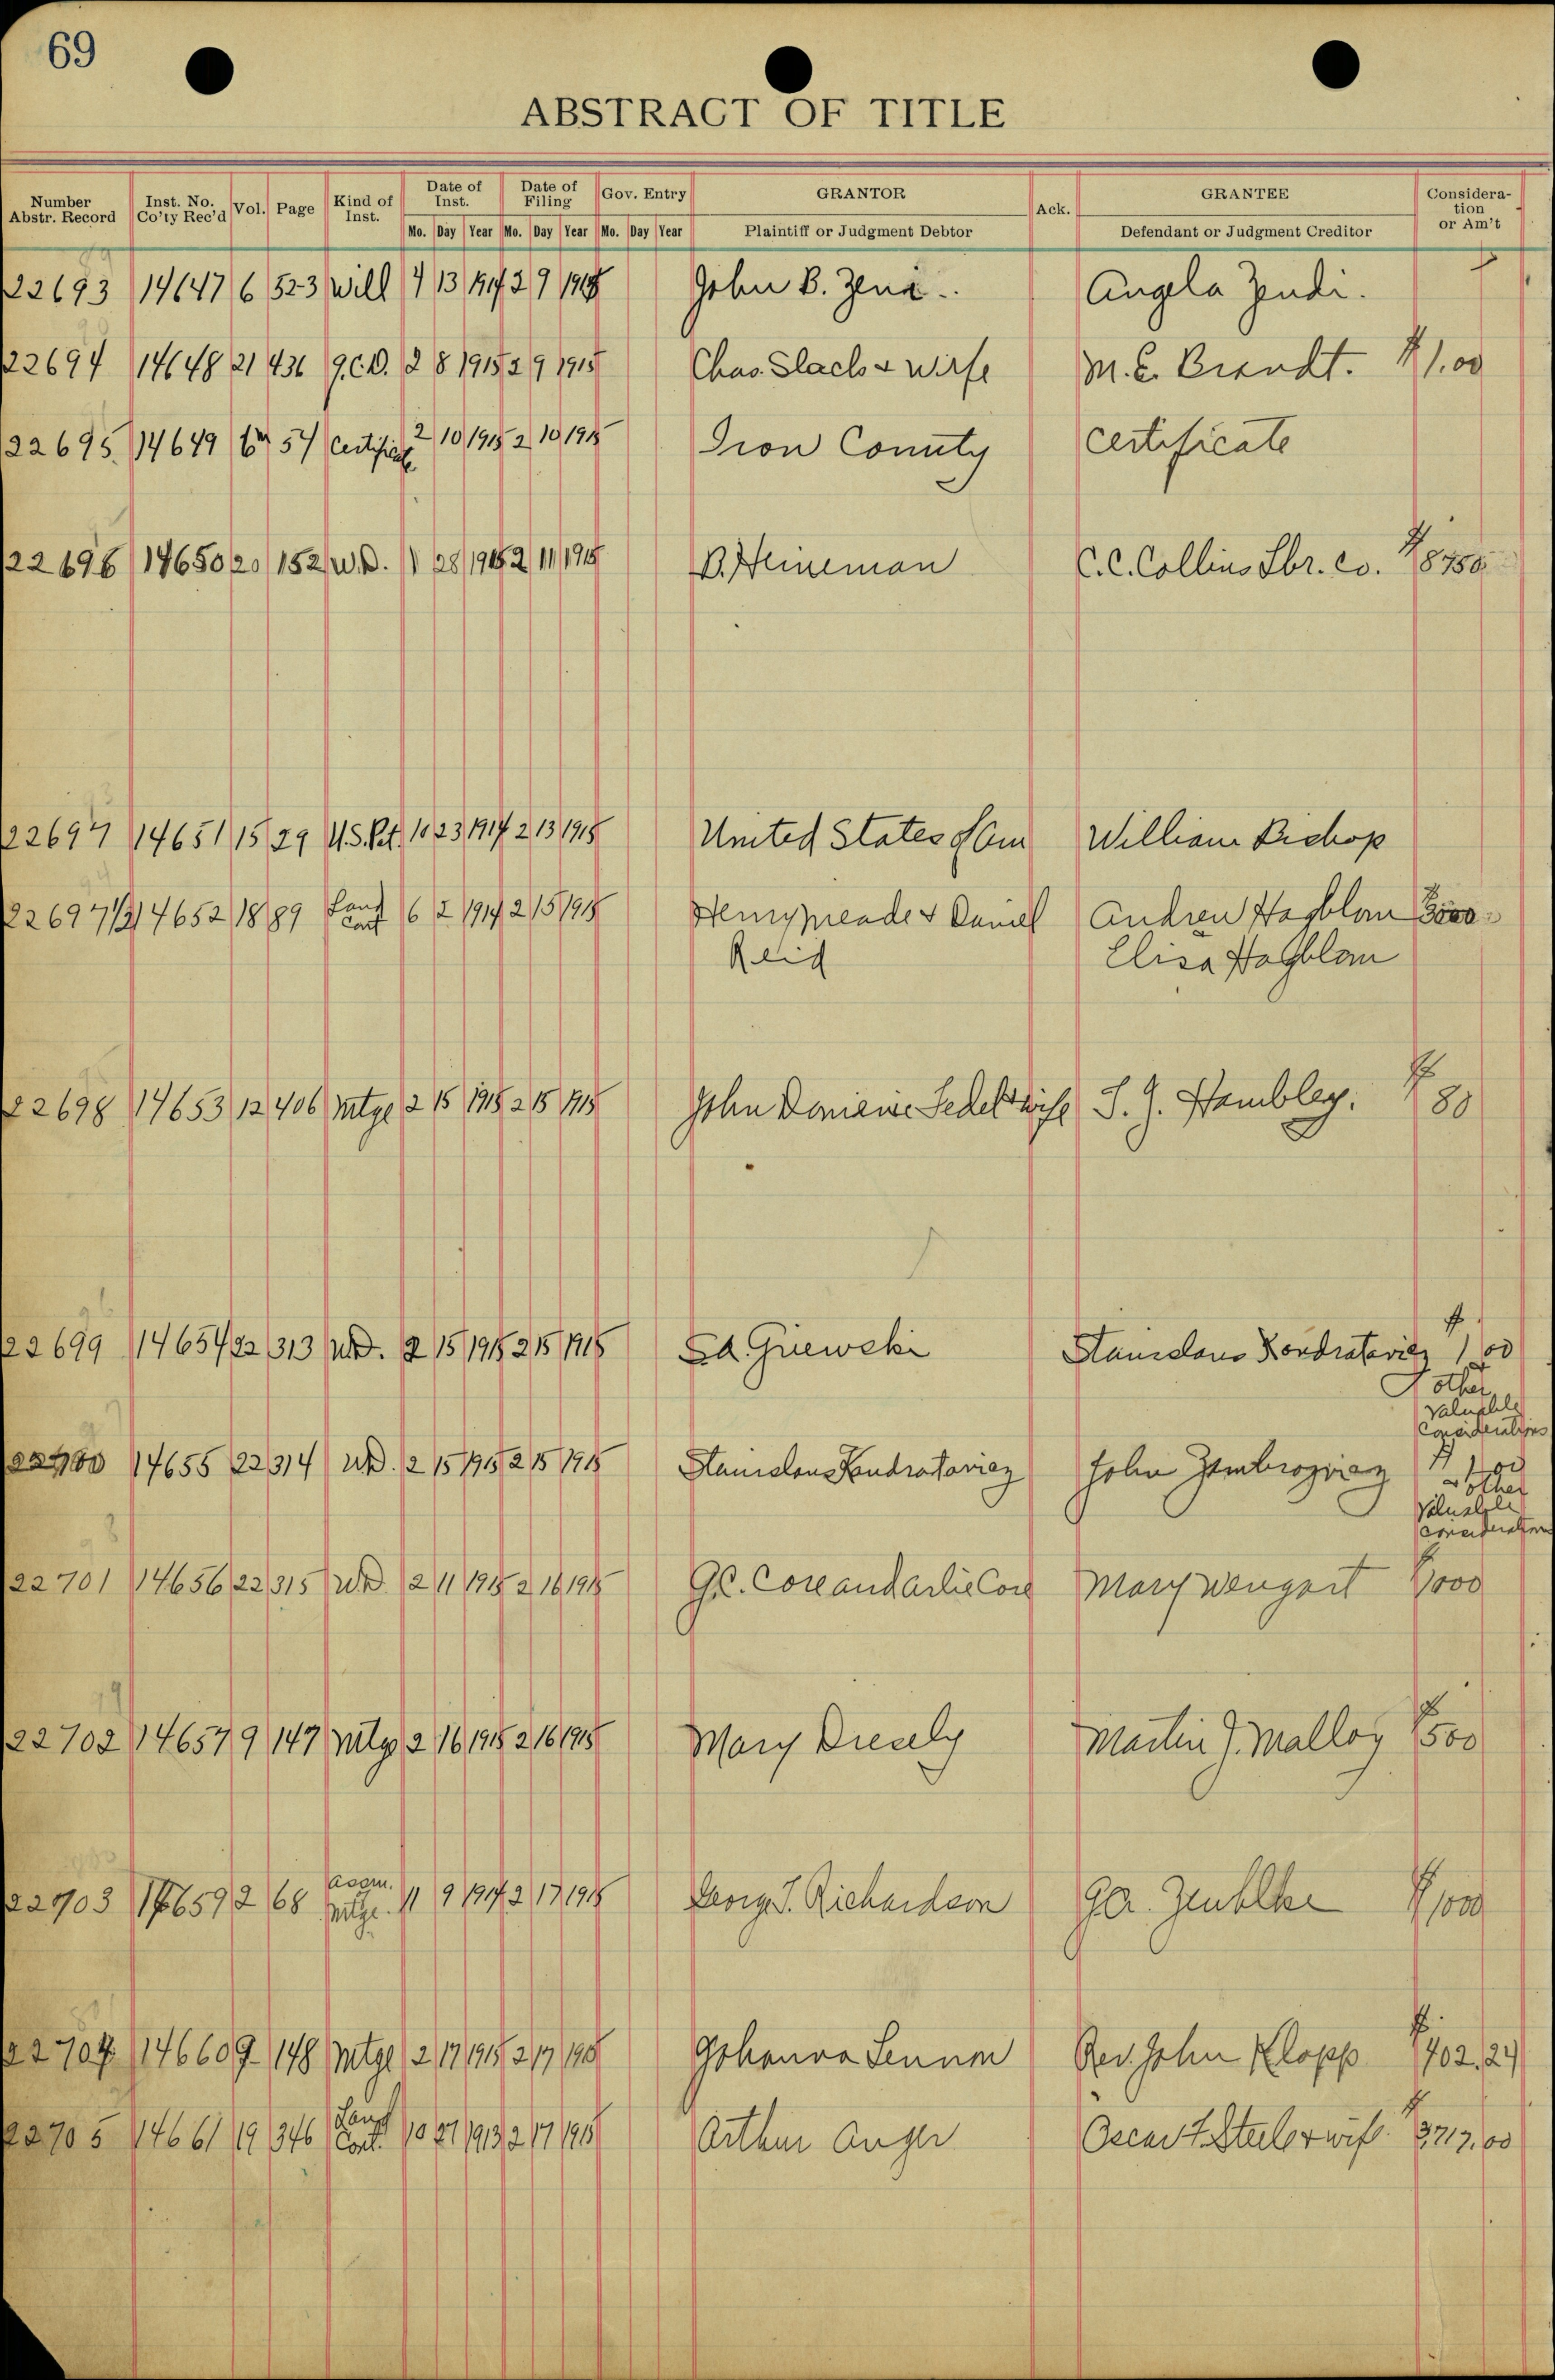 69
ABSTRACT OF TITLE
Number Abstr. Record Inst. No. Co'ty Rec'd Vol. Page Kind of Inst. Date of Inst. Date of Filing Gov. Entry GRANTOR Ack. GRANTEE Consideration or Am't
Mo. Day Year Mo. Day Year Mo. Day Year Plaintiff or Judgment Debtor Defendant or Judgment Creditor
22693 14647 6 523 Will 4 13 1914 2 9 1915 John B. Zeni Angela Zendi.
22694 14648 21 436 Q.C.D. 2 8 1915 2 9 1915 Chas. Slach & wife M. E. Brandt. $1.00
22695 14649 57 Certificate 2 10 1915 2 10 1915 Iron County Certificate
22696 14650 20 152 W.D. 1 28 1915 2 11 1915 B. Heineman C.C. Collins Lbr. Co. $8750
22697 14651 15 29 U.S. Pat. 10 23 1914 2 13 1915 United States of Am William Bishop
22697 1/2 14652 18 89 Land Cont 6 2 1914 2 15 1915 Henry Meade & Daniel Andrew Hagblom 3000
Reid Elisa Hagblom
22698 14653 12 406 Mtge 2 15 1915 2 15 1915 John Sedel & wife S. J. Hambley. $80
22699 14654 22 313 W.D. 2 15 1915 2 15 1915 Ed. Griewski Stanislaus Kondratovicz $1.00
& other
valuable
Considerations
22700 14655 22 314 W.D. 2 15 1915 2 15 1915 Stanislaus Kondratovicz John $1.00
& other
Valuable
consideration
22701 14656 22 315 W.D. 2 11 1915 2 16 1915 G.C. Core and Arlie Core Mary Wengert $1000
22702 14657 9 147 Mtge 2 16 1915 2 16 1915 Mary Martin J. Malloy $500
22703 14659 2 68 Assgn. Mtge. 11 9 1914 2 17 1915 George T. Richardson G.A. $1000
22704 14660 9 148 Mtge 2 17 1915 2 17 1915 Johanna Rev. John Klopp $402.24
22705 14661 19 346 Land Cont. 10 27 1913 2 17 1915 Arthur Anger Oscar & wife. $3717.00